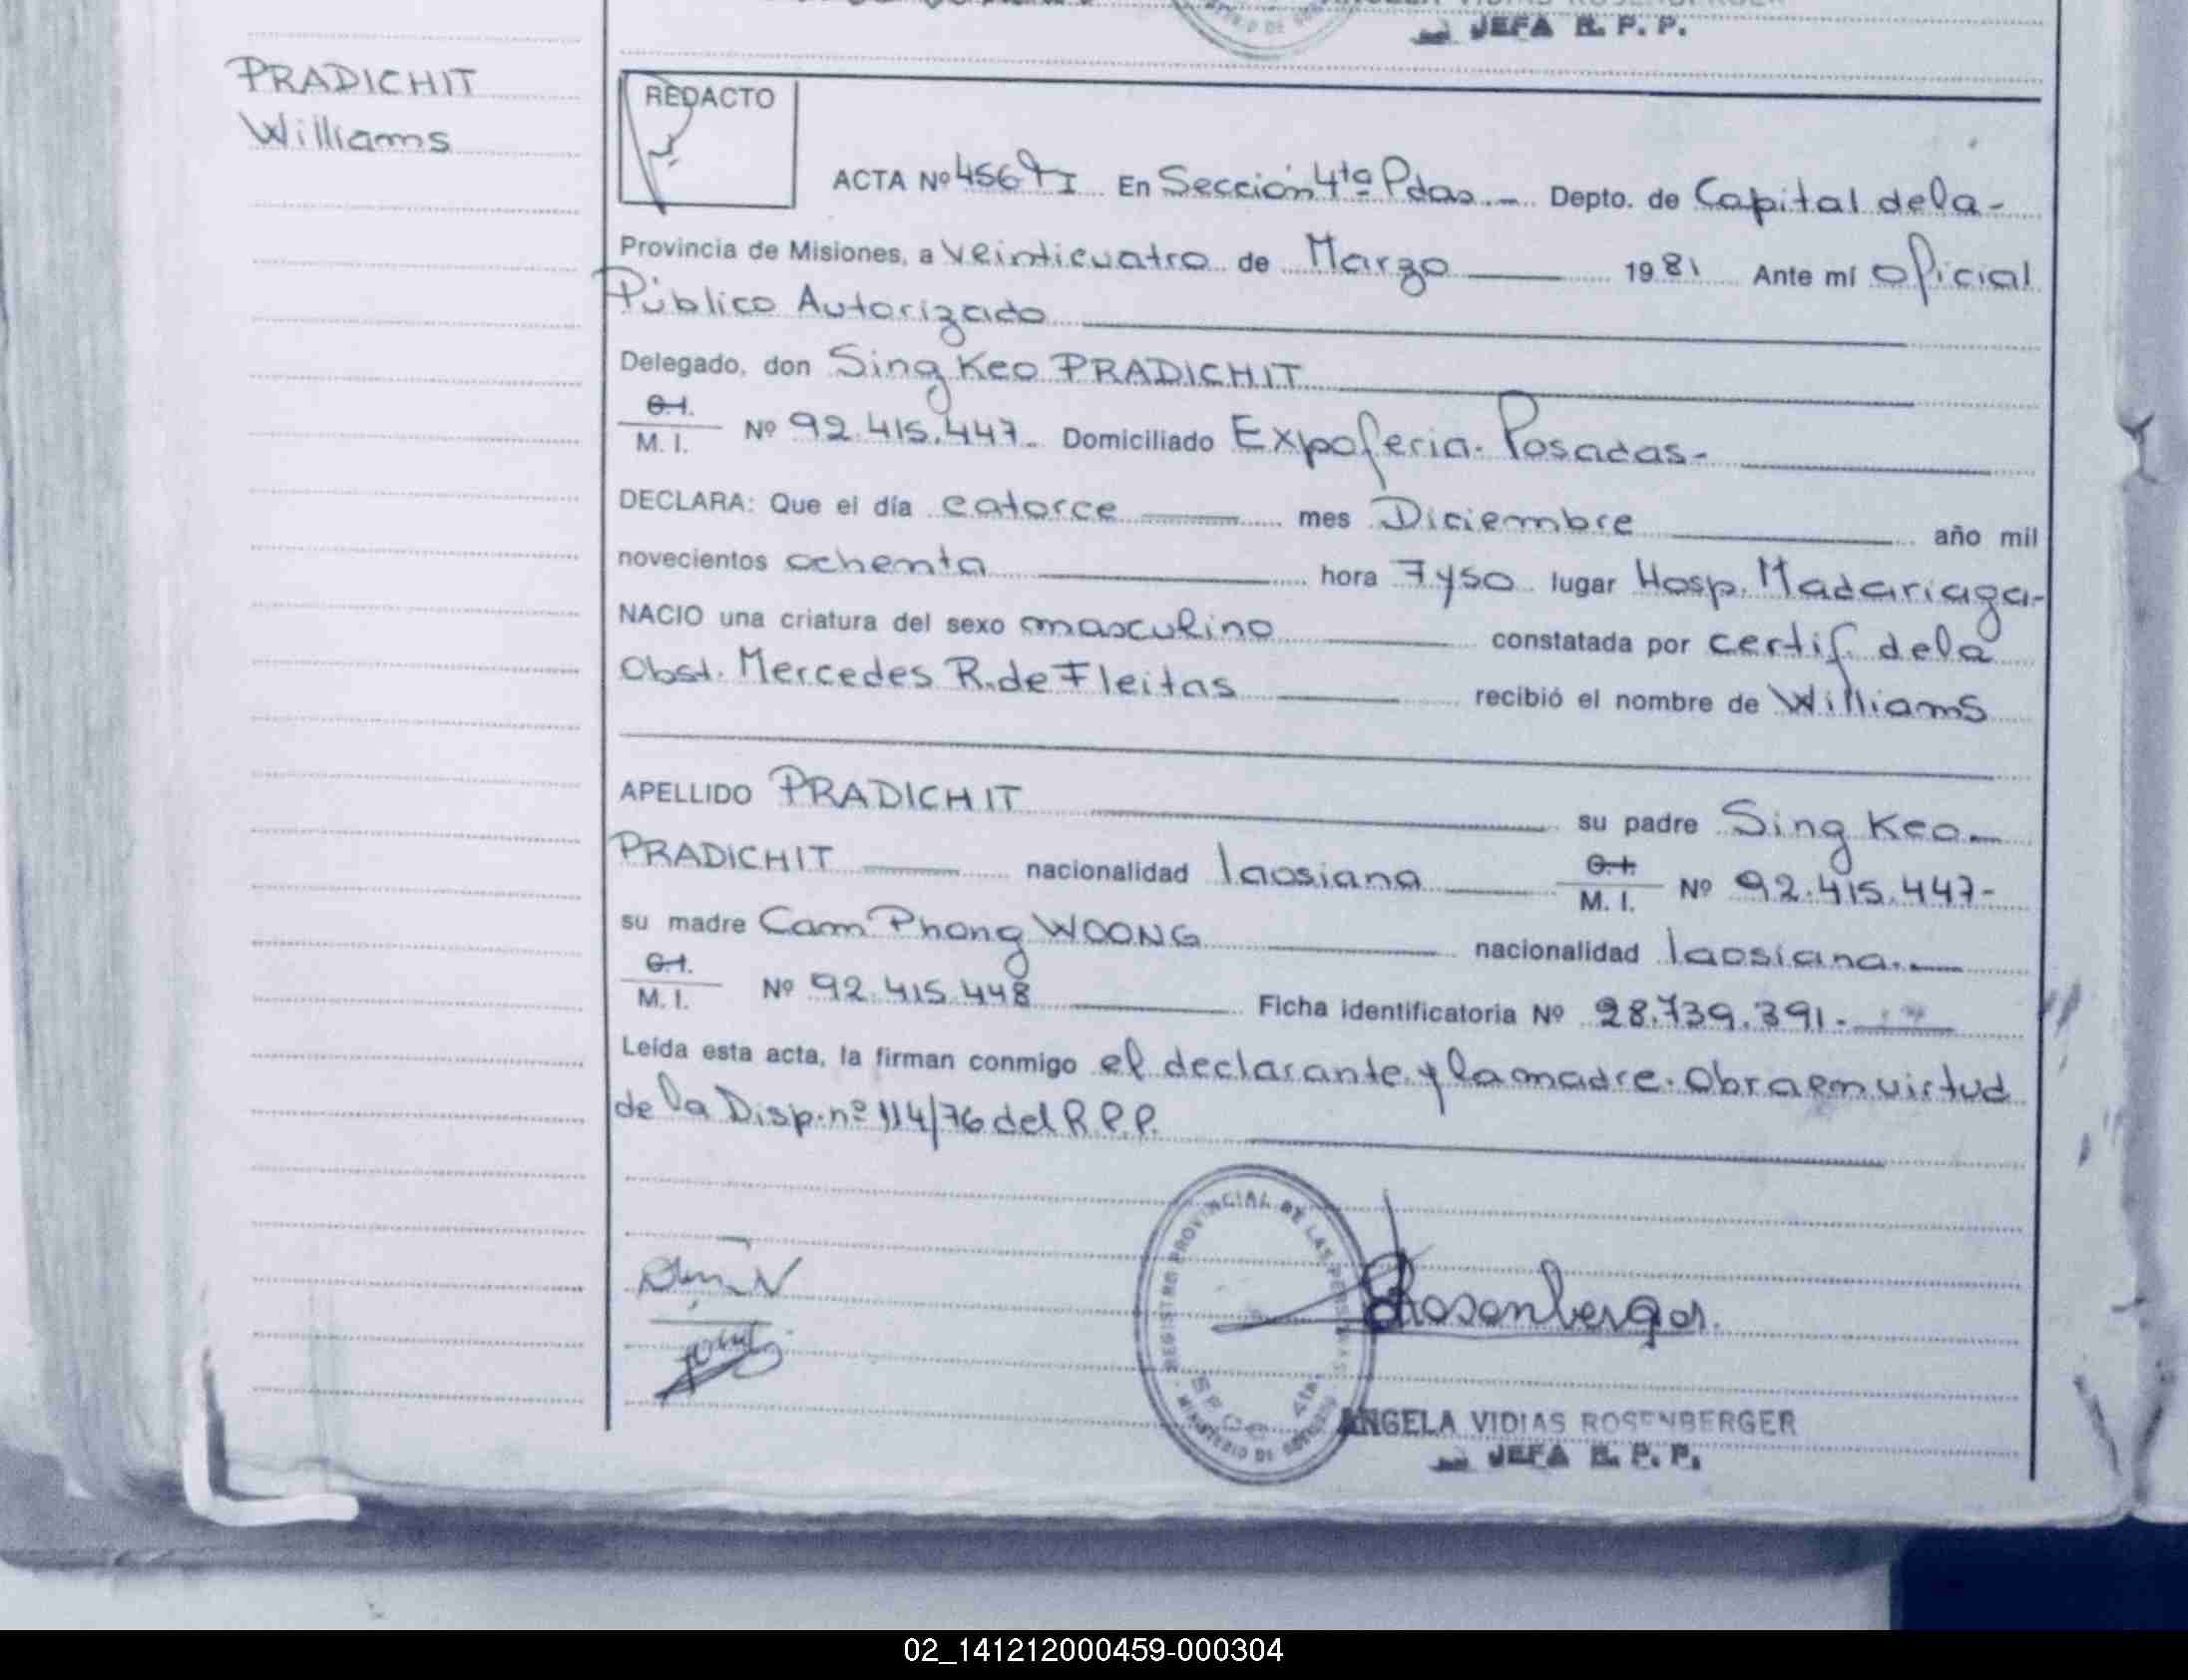 JEFA R. P. P.
PRADICHIT
Williams
REDACTO
ACTA Nº 456 I En Sección 4ta Pdas.- Depto. de Capital de la-
Provincia de Misiones, a veinticuatro de Marzo 1981 Ante mí Oficial
Público Autorizado
Delegado, don Sing Keo PRADICHIT
C.I.
M. I. Nº 92.415.447- Domiciliado Expoferia- Posadas-
DECLARA: Que el día catorce mes Diciembre año mil
novecientos ochenta hora 7 y 50 lugar Hosp. Madariaga-
NACIO una criatura del sexo masculino constatada por certif. de la
Obst. Mercedes R. de Fleitas recibió el nombre de Williams
APELLIDO PRADICHIT su padre Sing Keo
PRADICHIT nacionalidad laosiana C.I.
M. I. Nº 92.415.447-
su madre Cam Phong WOONG nacionalidad laosiana.
C.I.
M. I. Nº 92.415.448 Ficha identificatoria Nº 28.739.391-
Leída esta acta, la firman conmigo el declarante y la madre. Obra en virtud
de la Disp. nº 114/76 del R.P.P.
REGISTRO PROVINCIAL DE LAS PERSONAS
SECC. 4ta.
MINISTERIO DE GOBIERNO
Rosenberger
ANGELA VIDIAS ROSENBERGER
JEFA R. P. P.
02_141212000459-000304